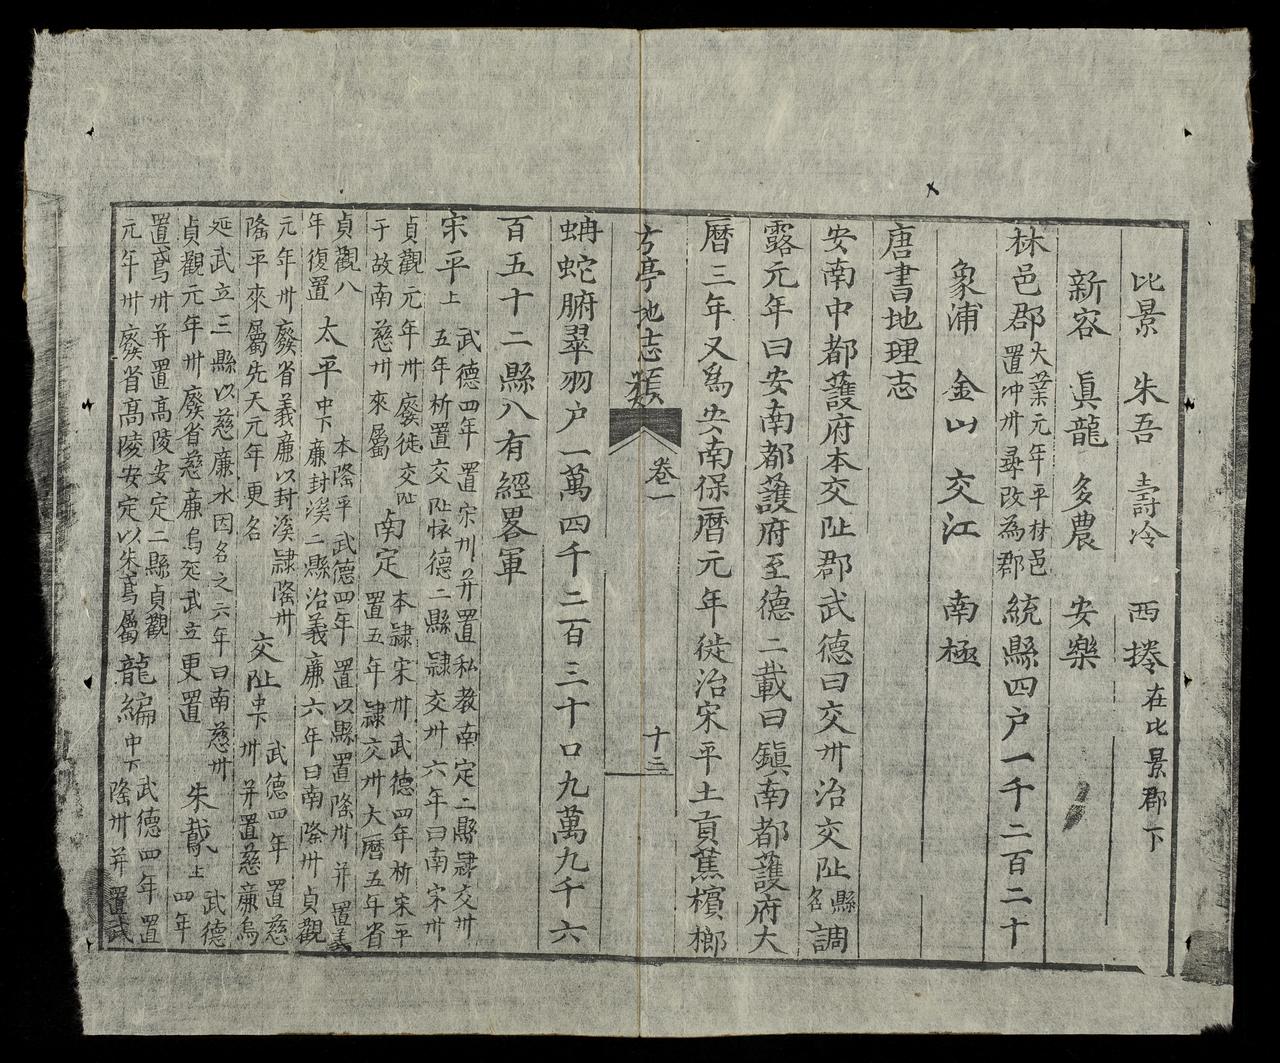 比景　朱吾　壽冷　西捲 在比景郡下
新容　真龍　多農　安樂
林邑郡 大業元年平林邑
置冲州尋改為郡 統縣四户一千二百二十
象浦　金山　交江　南極
唐書地理志
安南中都護府本交趾郡武德曰交州治交阯 縣
名 調
露元年曰安南都護府至德二載曰鎮南都護府大
曆三年又為安南保曆元年徙治宋平土貢蕉檳榔
蚺蛇腑翠羽户一萬四千二百三十口九萬九千六
百五十二縣八有經畧軍
宋平 上 武德四年置宋州并置私教南定二縣隷交州
五年析置交阯懷德二縣隷交州六年曰南宋州
貞觀元年州廢徙交阯
于故南慈州來屬 南定 本隷宋州武德四年析宋平
置五年隷交州大曆五年省
貞觀八
年復置 太平 中下 本隆平武德四年置以縣置隆州并置義
廉封溪二縣治義廉六年曰南隆州貞觀
元年州廢省義廉以封溪隷隆州
隆平來屬先天元年更名 交阯 中下 武德四年置慈
州并置慈廉烏
延武立三縣以慈廉水因名之六年曰南慈州
貞觀元年州廢省慈廉烏延武立更置 朱鳶 上 武德
四年
置鳶州并置高陵安定二縣貞觀
元年州廢省高陵安定以朱鳶屬 龍編 中下 武德四年置
隆州并置武
方亭地志類　卷一　十三